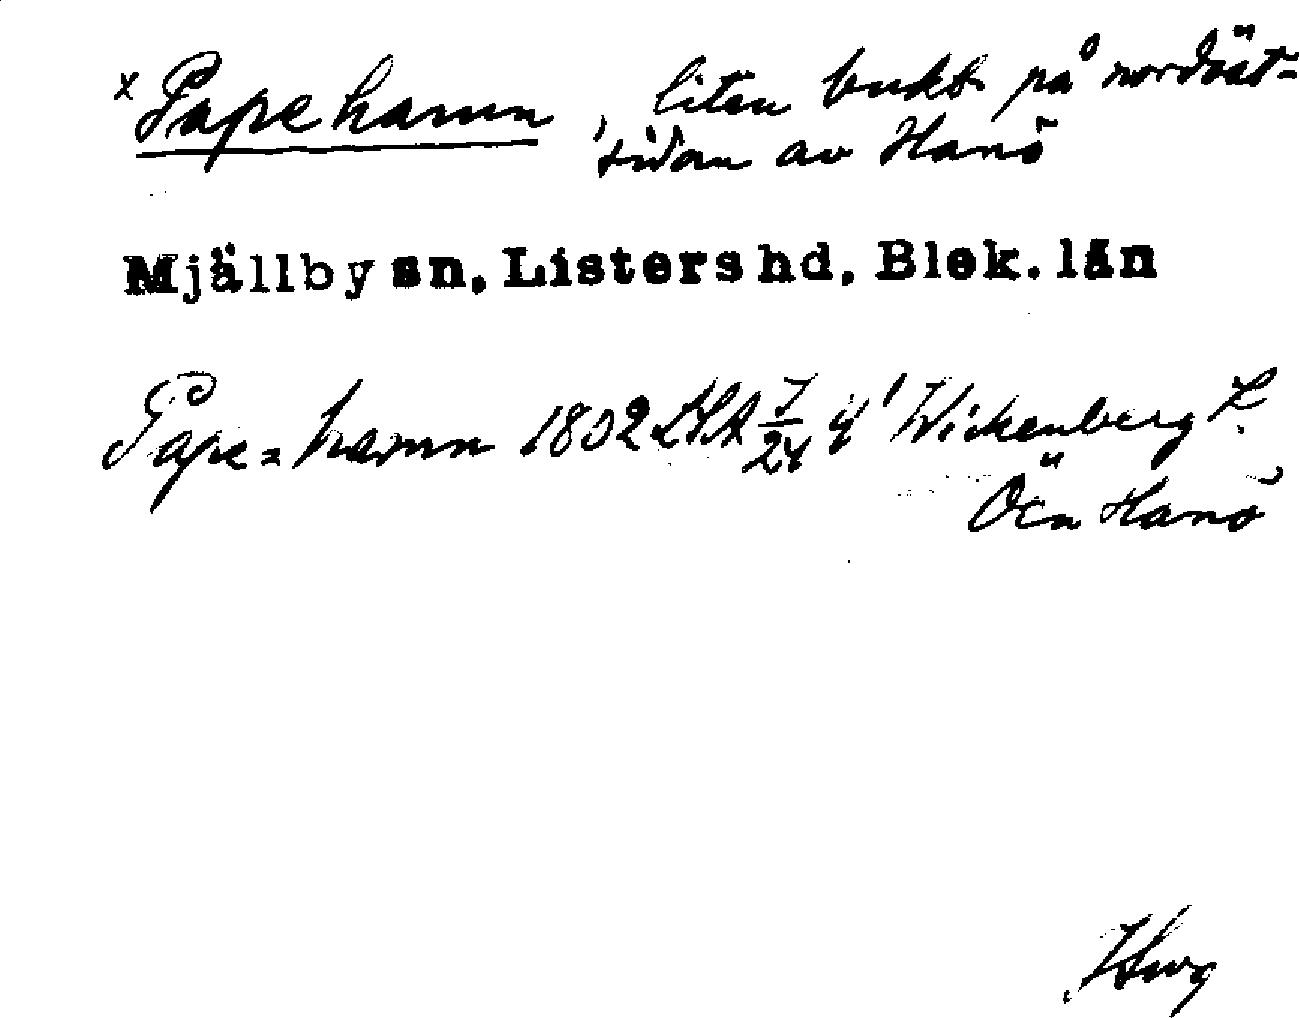 x Papehamn, liten bukt på nordöst-
sidan av Hanö
Mjällby sn, Listers hd, Blek. län
Pape=hamn 1802 LSA 7/24 4' Wickenberg K.
Öen Hanö